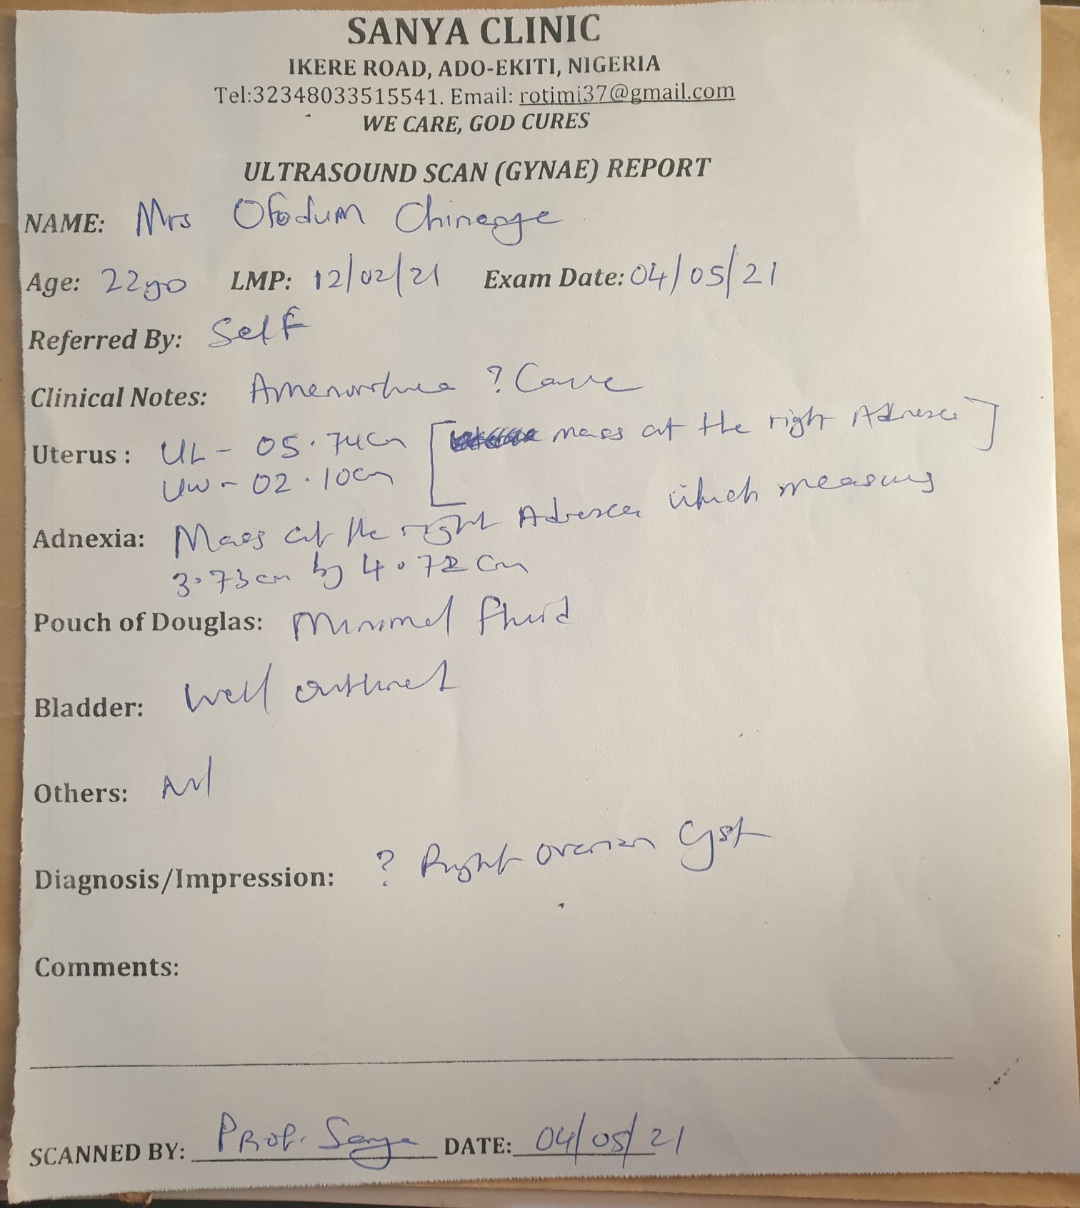 SANYA CLINIC
IKERE ROAD, ADO-EKITI, NIGERIA
Tel:32348033515541. Email: rotimi37@gmail.com
WE CARE, GOD CURES
ULTRASOUND SCAN (GYNAE) REPORT
NAME: Mrs Ofodum
Age: 22yo LMP: 12/02/21 Exam Date: 04/05/21
Referred By: Self
Clinical Notes: Amenorrhea ? Cause
Uterus : UL - 05.74cm [ mass at the right Adnexa ]
UW - 02.10cm
Adnexia: Mass at the right Adnexa which measures
3.73cm by 4.72cm
Pouch of Douglas: Minimal fluid
Bladder: Well outlined
Others: Nil
Diagnosis/Impression: ? Right ovarian Cyst
Comments:
SCANNED BY: Prof. Sanya DATE: 04/05/21